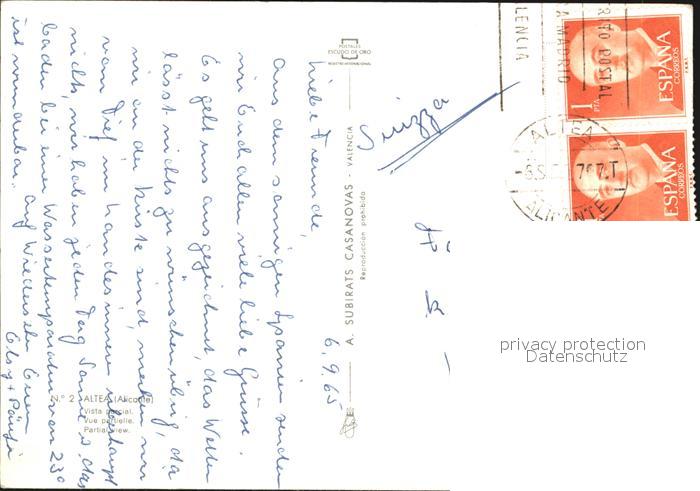 6.9.65
Liebe Freunde,
Aus dem sonnigen Spanien senden
wir Euch allen viele liebe Grüsse.
Es geht uns ausgezeichnet, das Wetter
lässt nichts zu wünschen übrig, da
wir an der Küste sind, merken wir
vom Tief im Landesinnern überhaupt
nichts, wir haben jeden Tag Sonne & das
baden bei einer Wassertemperatur von 23°
ist wunderbar.
Auf Wiedersehn Euere
Elsy +
N.º 2 - ALTEA (Alicante)
Vista parcial.
Vue partielle.
Partial view.
POSTALES
ESCUDO DE ORO
REGISTRO INTERNACIONAL
A. SUBIRATS CASANOVAS - VALENCIA
Reproducción prohibida
Suizza
ESPAÑA
CORREOS
1
PTA
ESPAÑA
CORREOS
ALTEA
ALICANTE
LENCIA
A MADRID
RITO POSTAL
privacy protection
Datenschutz